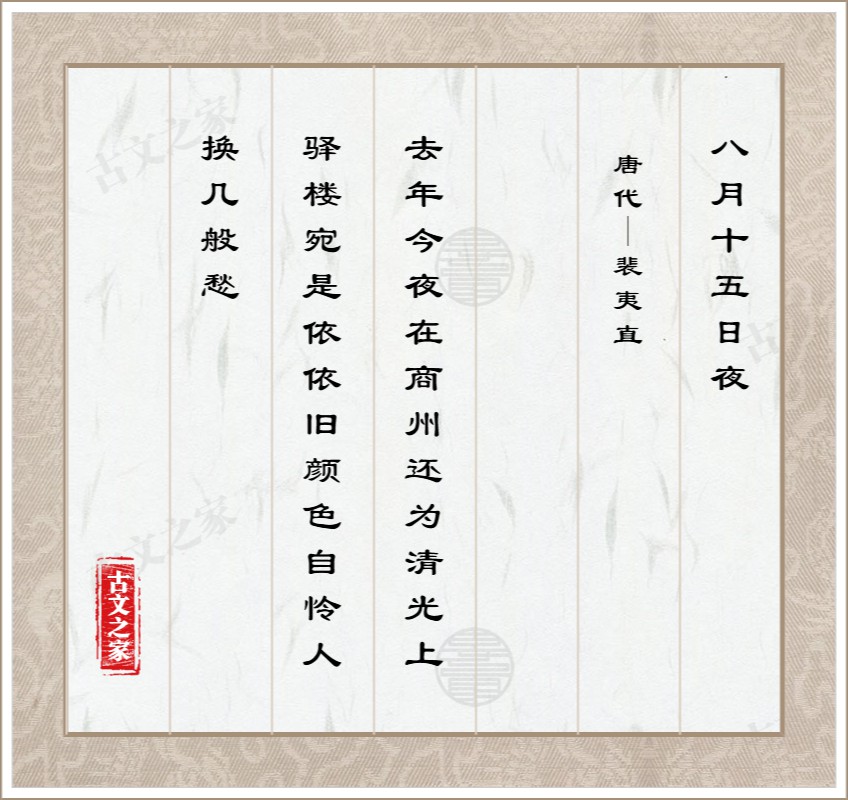 八月十五日夜
唐代—裴夷直
去年今夜在商州还为清光上
驿楼宛是依依旧颜色自怜人
换几般愁
古文之家
古文之家
古文之家